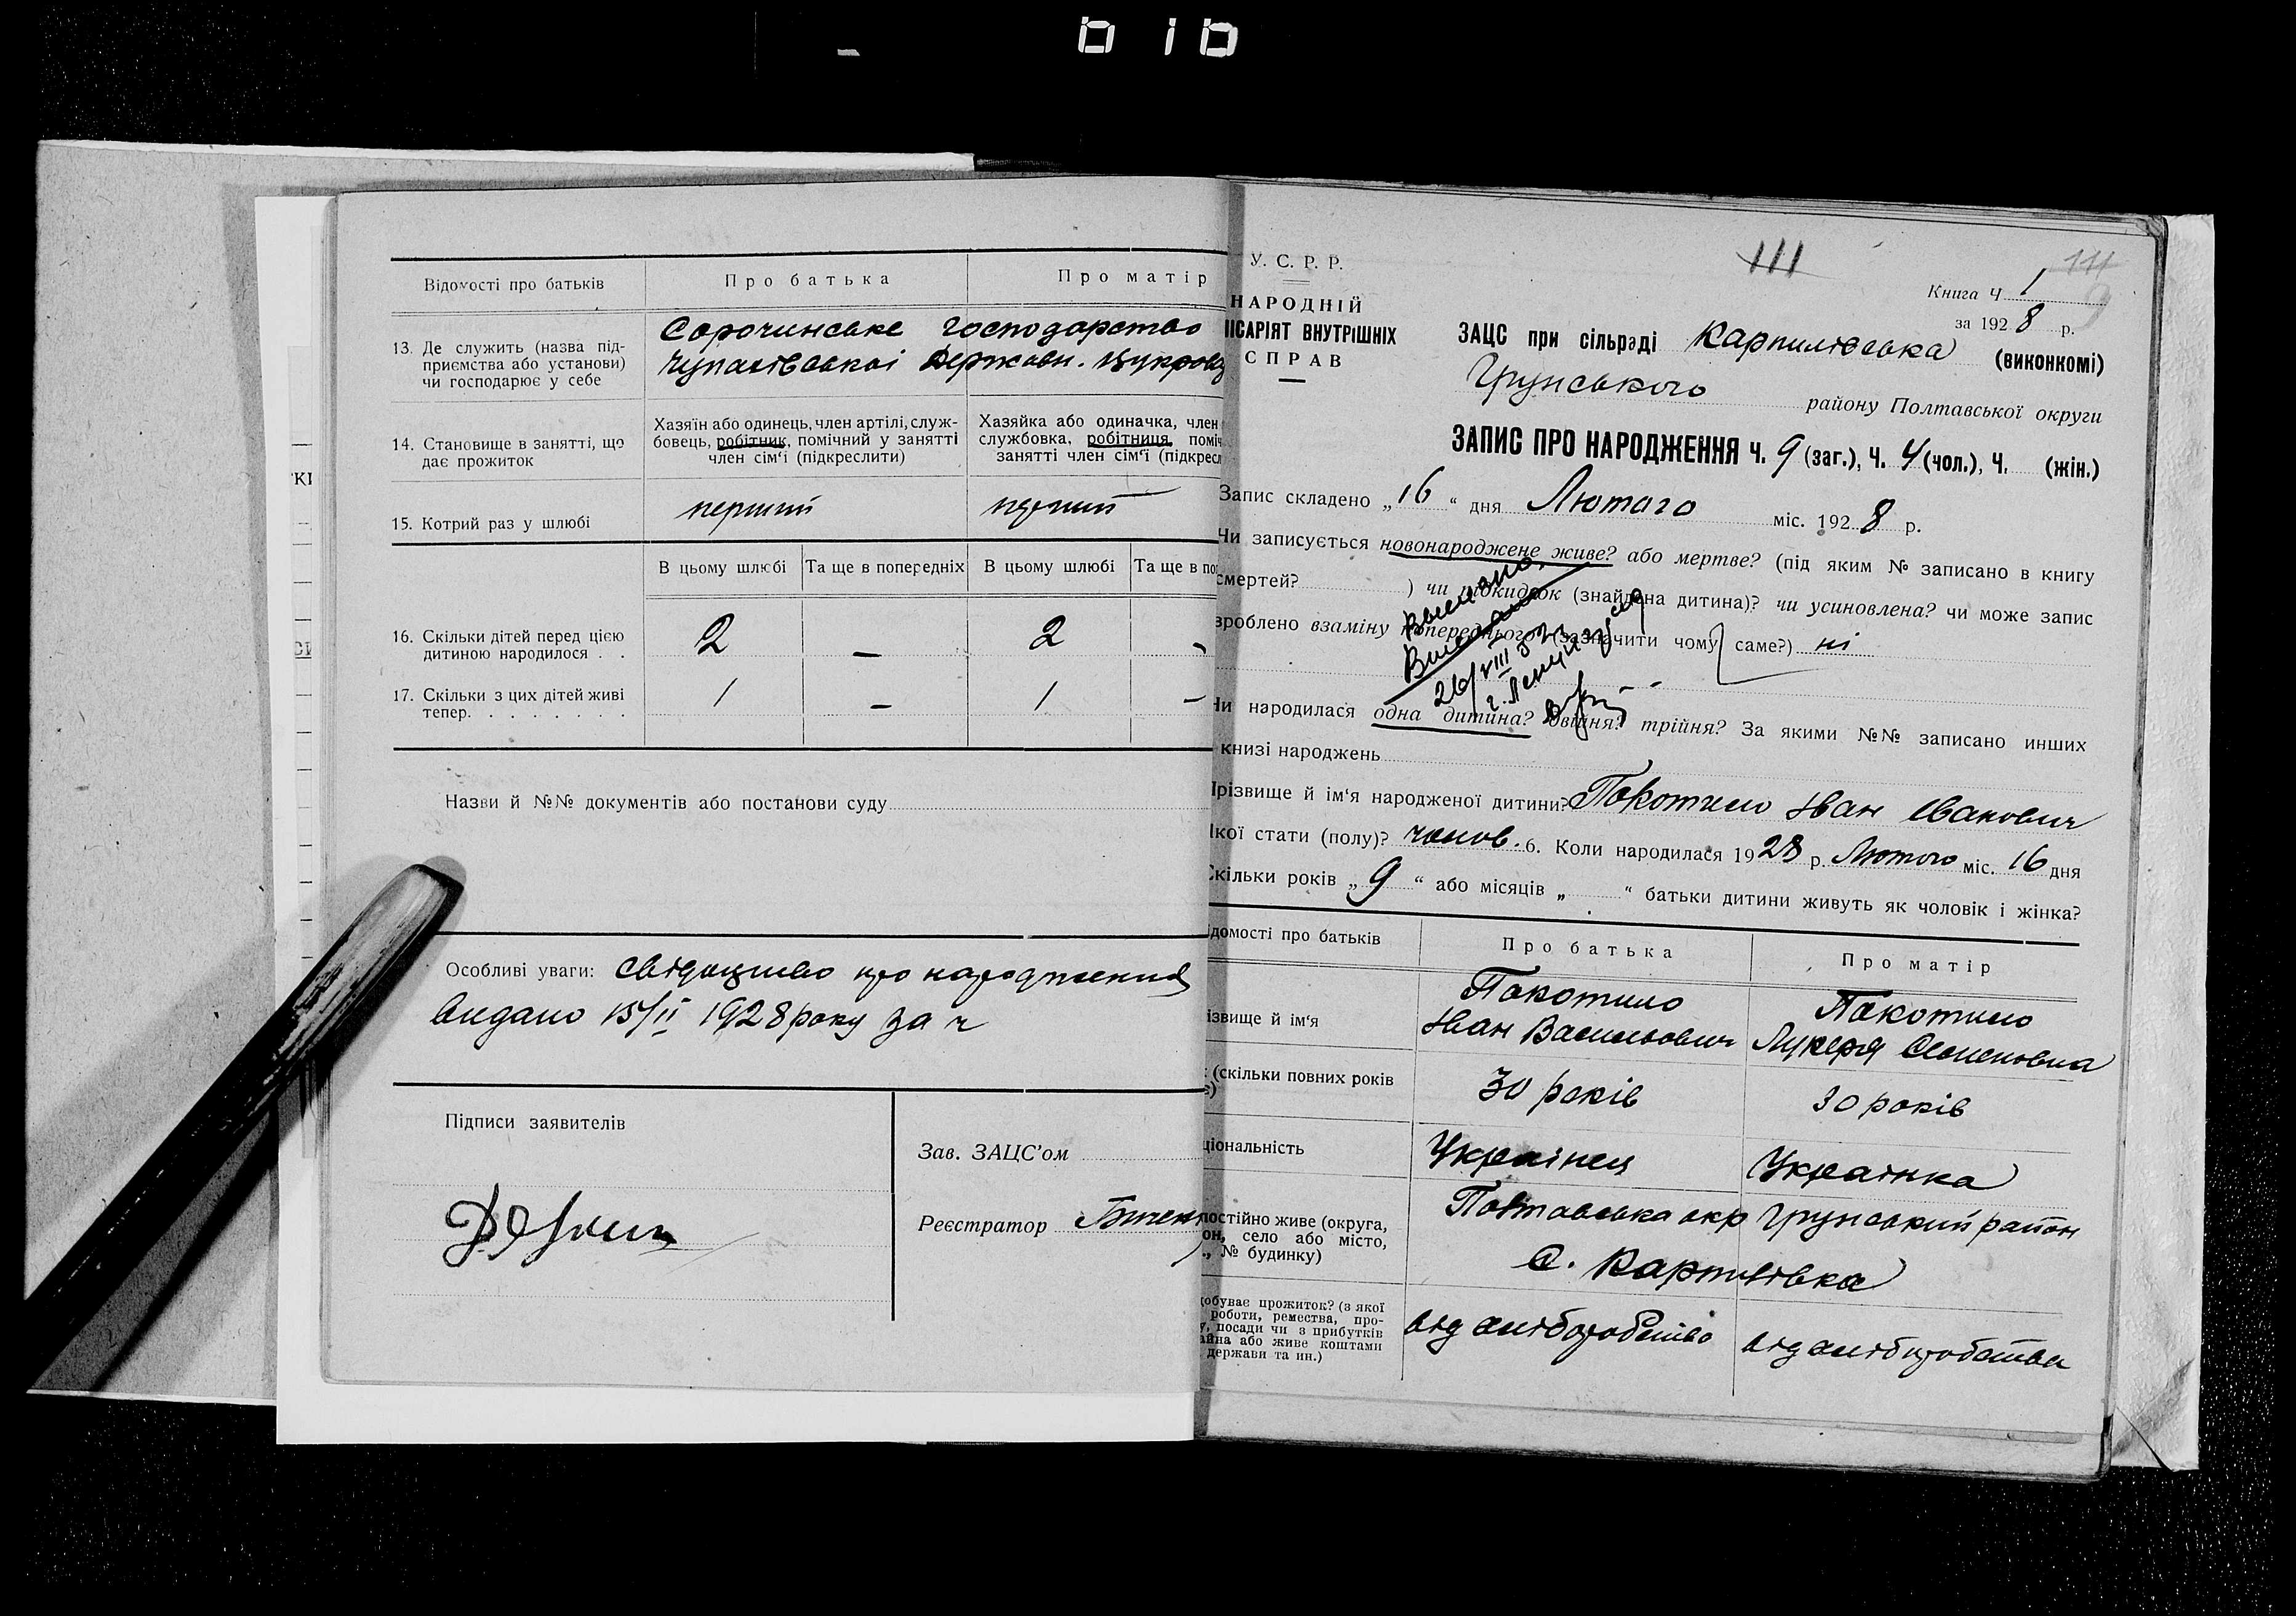 Відомості про батьків
Про батька
Про матір
13. Де служить (назва під-
приємства або установи)
чи господарює у себе
Сорочинське господарство
Чупахівської Державн. Цукров
14. Становище в занятті, що
дає прожиток
Хазяїн або одинець, член артілі, служ-
бовець, робітник, помічний у занятті
член сім'ї (підкреслити)
Хазяйка або одиначка, член
службовка, робітниця, поміч
занятті член сім'ї (підкресл
15. Котрий раз у шлюбі
перший
перший
В цьому шлюбі
Та ще в попередніх
В цьому шлюбі
Та ще в по
16. Скільки дітей перед цією
дитиною народилося . .
2 — 2 -
17. Скільки з цих дітей живі
тепер. . . . . . . .
1 — 1 -
Назви й №№ документів або постанови суду
Особливі уваги: свідоцтво про народження
видано 15/II 1928 року за ч
Підписи заявителів
Зав. ЗАЦС'ом
Реєстратор
У. С. Р. Р.
НАРОДНІЙ
ІСАРІЯТ ВНУТРІШНІХ
СПРАВ
111
111
Книга Ч 1
за 1928 р.
ЗАЦС при сільраді Карпилівська (виконкомі)
Грунського району Полтавської округи
ЗАПИС ПРО НАРОДЖЕННЯ Ч. 9 (заг.), Ч. 4 (чол.), Ч. (жін.)
Запис складено „16“ дня Лютого міс. 1928 р.
Чи записується новонароджене живе? або мертве? (під яким № записано в книгу
смертей? ) чи підкидок (знайдена дитина)? чи усиновлена? чи може запис
зроблено взаміну попереднього (зазначити чому саме?) ні
26/VIII
Чи народилася одна дитина? двійня? трійня? За якими №№ записано инших
книзі народжень
Прізвище й ім'я народженої дитини? Покотило Іван Іванович
якої стати (полу)? чолов. 6. Коли народилася 1928 р. Лютого міс. 16 дня
Скільки років „9“ або місяців „ “ батьки дитини живуть як чоловік і жінка?
ідомості про батьків
Про батька
Про матір
ізвище й ім'я
Покотило
Іван Васильович
Покотило
Лукеря Семеновна
(скільки повних років
30 років
30 років
ціональність
Українець
Українка
постійно живе (округа,
он, село або місто,
., № будинку)
Полтавська окр Грунський район
С. Карпилівка
обуває прожиток? (з якої
роботи, ремества, про-
у, посади чи з прибутків
айна або живе коштами
держави та ин.)
від хліборобство
від хліборобства